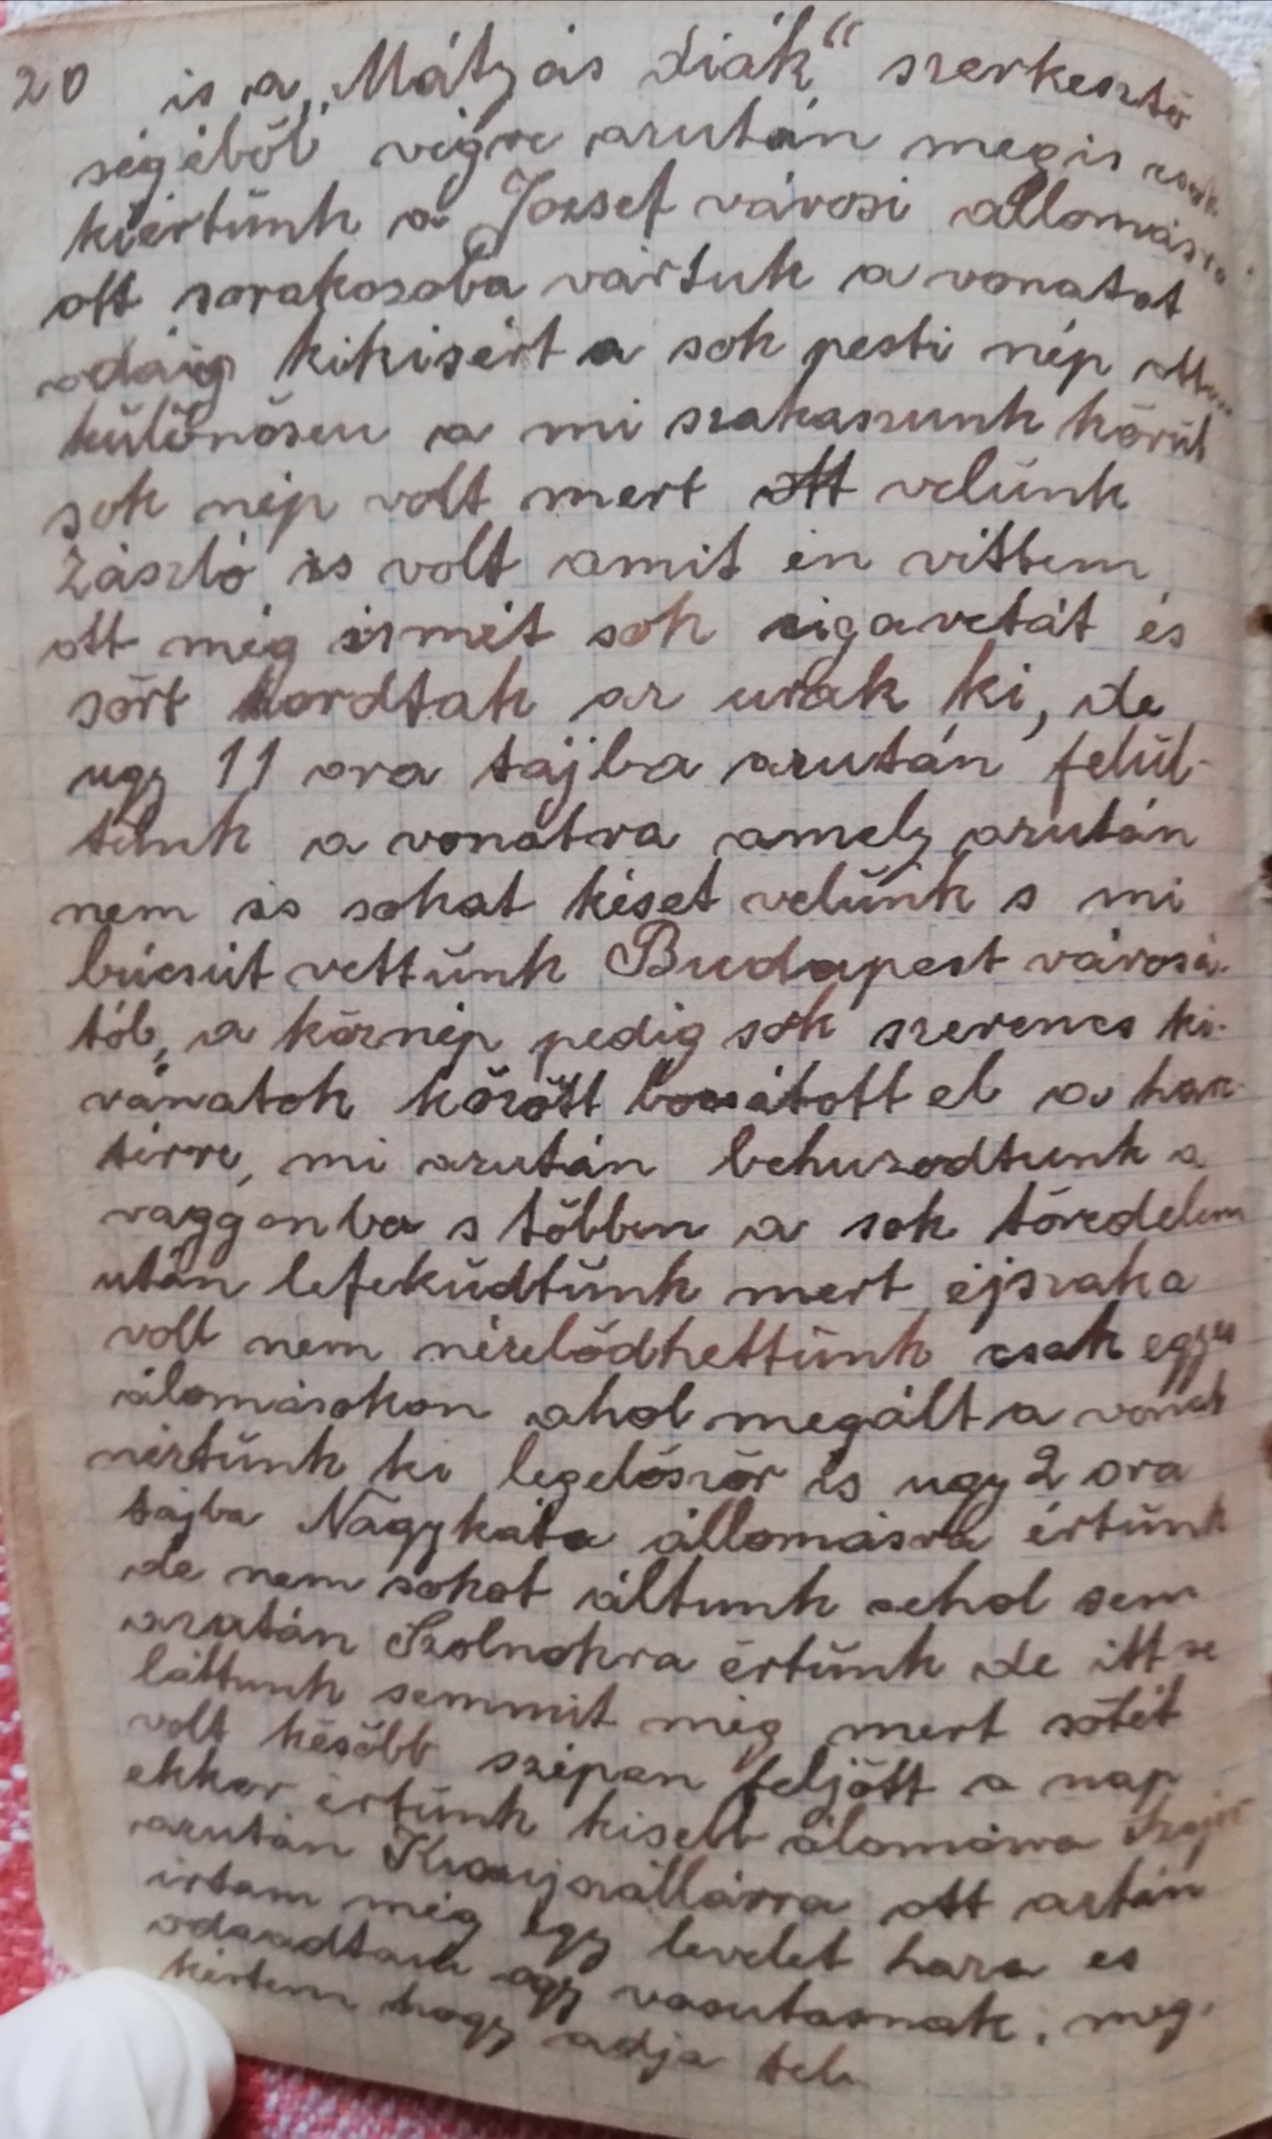 20 is a „Mátyás diák“ szerkesztő
ségéből végre azután megis csak
kiértünk a Jozsef városi allomásra
ott sorakozoba vártuk a vonatot
odáig kikisért a sok pesti nép
különösen a mi szakaszunk körül
sok nép volt mert ott velünk
zászló is volt amit én vittem
ott még ismét sok cigaretát és
sört hordtak az urak ki, de
ugy 11 ora tájba azután felül-
tünk a vonatra amely azután
nem is sokat késet velünk s mi
búcsút vettünk Budapest városá-
tól, a köznép pedig sok szerencs ki-
vánatok között bocsátott el a harc
térre, mi azután behuzodtunk a
vaggonba s többen a sok töredelem
után lefeküdtünk mert éjszaka
volt nem nézelödhettünk csak egyes
álomásokon ahol megált a vonat
néztünk ki legelöször is ugy 2 ora
tájba Nagykáta állomásra értünk
de nem sokat áltunk sehol sem
azután Szolnokra értünk de itt se
láttunk semmit még mert sötét
volt később szépen feljött a nap
ekkor értünk kisebb álomásra
azután Kisujszállásra ott aztán
irtam még egy levelet haza es
odaadtam egy vasutasnak, meg-
kértem hogy adja fel.